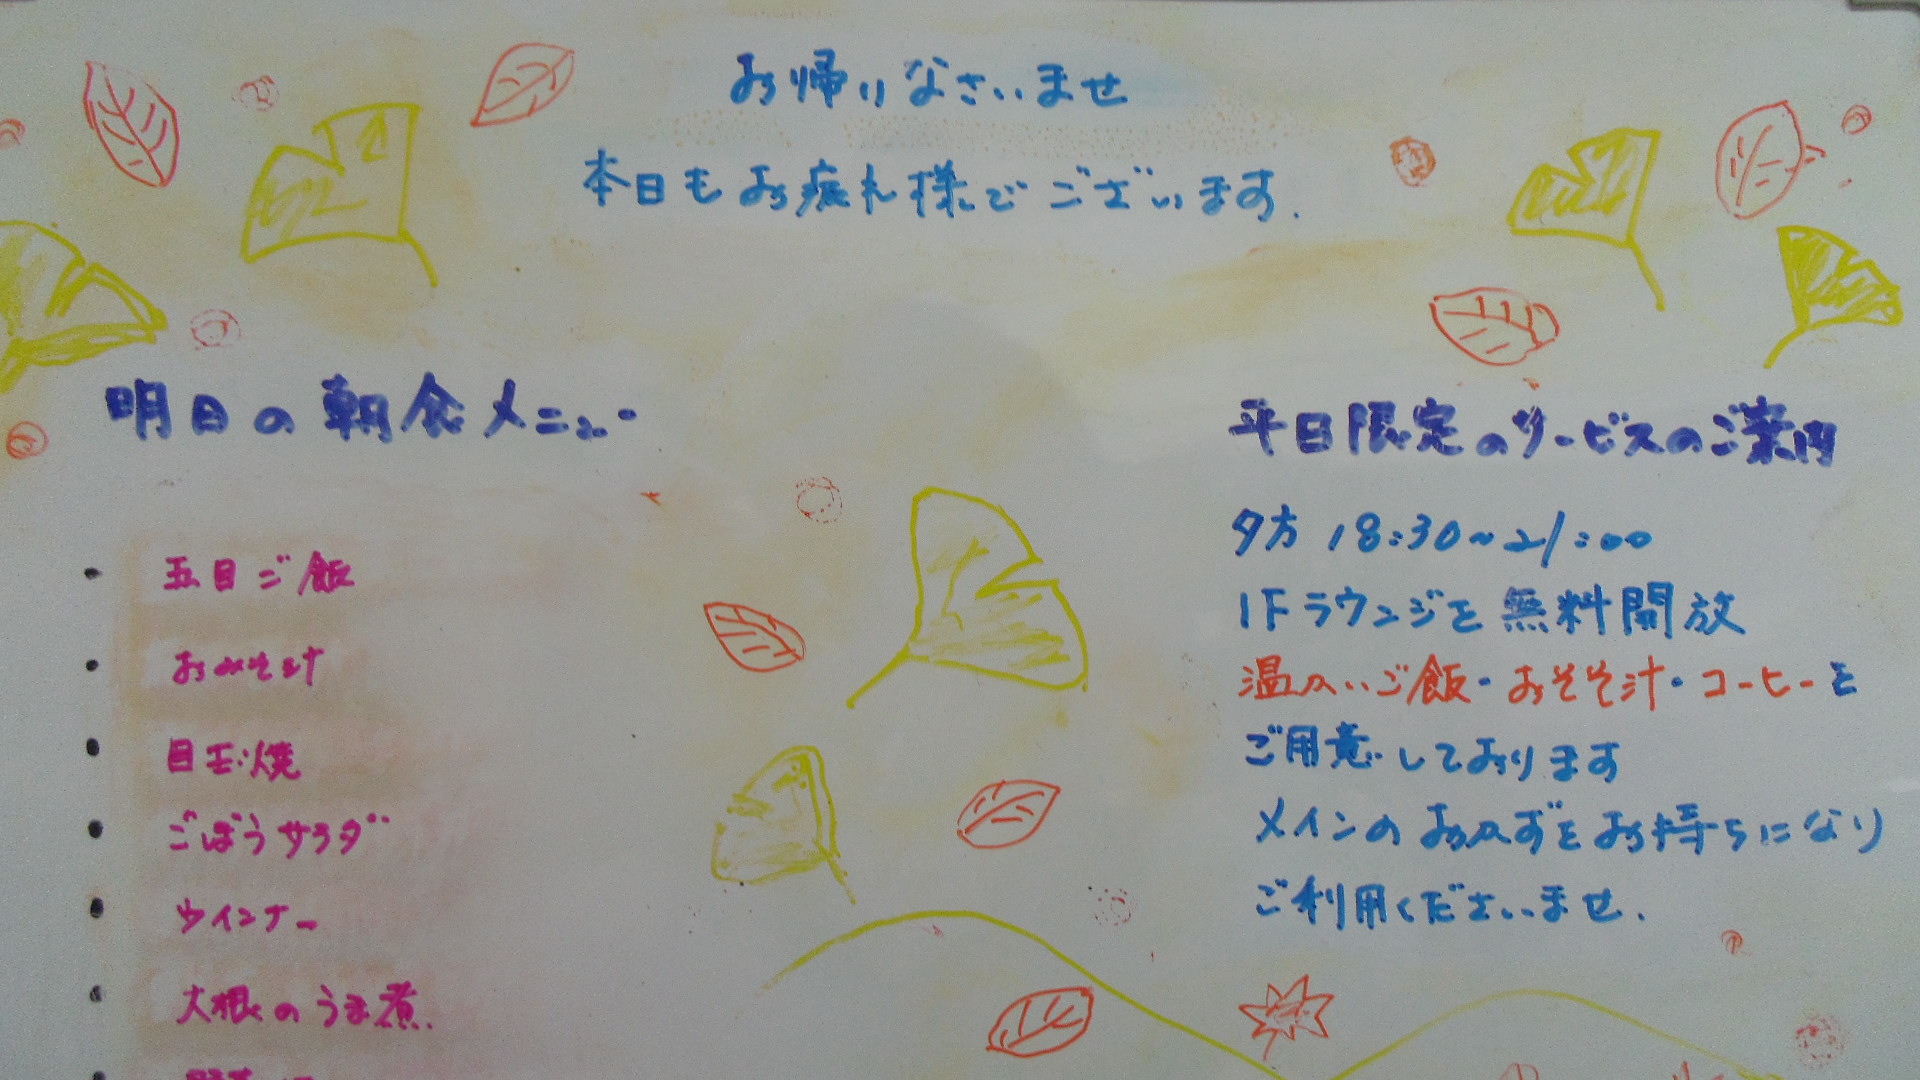 お帰りなさいませ
本日もお疲れ様でございます.
明日の朝食メニュー
・ 五目ご飯
・ おみそ汁
・ 目玉焼
・ ごぼうサラダ
・ ウインナー
・ 大根のうま煮.
平日限定のサービスのご案内
夕方 18:30~21:00
1Fラウンジを無料開放
温かいご飯・おそそ汁・コーヒーを
ご用意しております
メインのおかずをお持ちになり
ご利用くださいませ.